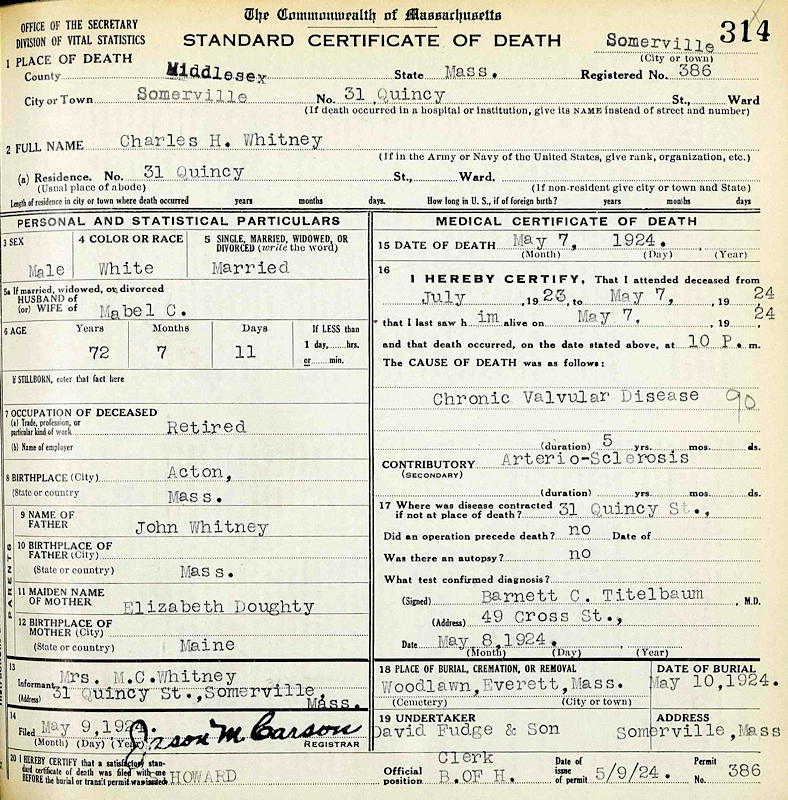 The Commonwealth of Massachusetts
OFFICE OF THE SECRETARY
DIVISION OF VITAL STATISTICS
STANDARD CERTIFICATE OF DEATH
314
Somerville
(City or town)
1 PLACE OF DEATH
County Middlesex State Mass. Registered No. 386
City or Town Somerville No. 31 Quincy St., Ward
(If death occurred in a hospital or institution, give its NAME instead of street and number)
2 FULL NAME Charles H. Whitney
(If in the Army or Navy of the United States, give rank, organization, etc.)
(a) Residence. No. 31 Quincy St., Ward.
(Usual place of abode) (If non-resident give city or town and State)
Length of residence in city or town where death occurred years months days. How long in U. S., if of foreign birth? years months days
PERSONAL AND STATISTICAL PARTICULARS
3 SEX 4 COLOR OR RACE 5 SINGLE, MARRIED, WIDOWED, OR
DIVORCED (write the word)
Male White Married
5a If married, widowed, or divorced
HUSBAND of
(or) WIFE of Mabel C.
6 AGE Years Months Days If LESS than
1 day, hrs.
or min.
72 7 11
If STILLBORN, enter that fact here
7 OCCUPATION OF DECEASED
(a) Trade, profession, or
particular kind of work Retired
(b) Name of employer
8 BIRTHPLACE (City) Acton,
(State or country) Mass.
PARENTS
9 NAME OF
FATHER John Whitney
10 BIRTHPLACE OF
FATHER (City)
(State or country) Mass.
11 MAIDEN NAME
OF MOTHER Elizabeth Doughty
12 BIRTHPLACE OF
MOTHER (City)
(State or country) Maine
13
Informant Mrs. M.C.Whitney
(Address) 31 Quincy St.,Somerville,
Mass.
14
Filed May 9,1924
(Month) (Day) (Year) REGISTRAR
MEDICAL CERTIFICATE OF DEATH
15 DATE OF DEATH May 7, 1924.
(Month) (Day) (Year)
16
I HEREBY CERTIFY, That I attended deceased from
July , 19 23, to May 7, , 19 24
that I last saw h im alive on May 7, , 19 24
and that death occurred, on the date stated above, at 10 P. m.
The CAUSE OF DEATH was as follows:
Chronic Valvular Disease 90
(duration) 5 yrs. mos. ds.
CONTRIBUTORY Arterio-Sclerosis
(SECONDARY)
(duration) yrs. mos. ds.
17 Where was disease contracted
if not at place of death? 31 Quincy St.,
Did an operation precede death? no Date of
Was there an autopsy? no
What test confirmed diagnosis?
(Signed) Barnett C. Titelbaum , M.D.
(Address) 49 Cross St.,
Date May 8,1924.
(Month) (Day) (Year)
18 PLACE OF BURIAL, CREMATION, OR REMOVAL DATE OF BURIAL
Woodlawn,Everett,Mass. May 10,1924.
(Cemetery) (City or town)
19 UNDERTAKER ADDRESS
David Fudge & Son Somerville,Mass
20 I HEREBY CERTIFY that a satisfactory stan-
dard certificate of death was filed with me
BEFORE the burial or transit permit was issued HOWARD
Official
position Clerk
B.OF H.
Date of
issue
of permit 5/9/24.
Permit
No. 386